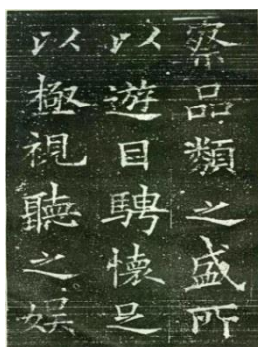 察品類之盛所
以遊目騁懷足
以極視聽之娯